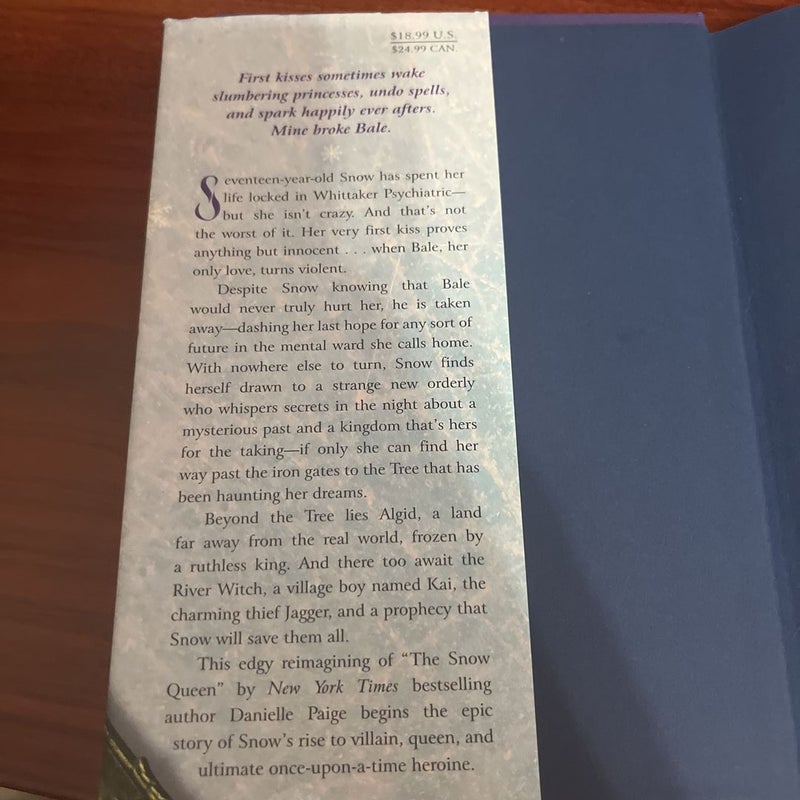 $18.99 U.S.
$24.99 CAN.
First kisses sometimes wake
slumbering princesses, undo spells,
and spark happily ever afters.
Mine broke Bale.
Seventeen-year-old Snow has spent her
life locked in Whittaker Psychiatric—
but she isn't crazy. And that's not
the worst of it. Her very first kiss proves
anything but innocent . . . when Bale, her
only love, turns violent.
Despite Snow knowing that Bale
would never truly hurt her, he is taken
away—dashing her last hope for any sort of
future in the mental ward she calls home.
With nowhere else to turn, Snow finds
herself drawn to a strange new orderly
who whispers secrets in the night about a
mysterious past and a kingdom that's hers
for the taking—if only she can find her
way past the iron gates to the Tree that has
been haunting her dreams.
Beyond the Tree lies Algid, a land
far away from the real world, frozen by
a ruthless king. And there too await the
River Witch, a village boy named Kai, the
charming thief Jagger, and a prophecy that
Snow will save them all.
This edgy reimagining of “The Snow
Queen” by New York Times bestselling
author Danielle Paige begins the epic
story of Snow's rise to villain, queen, and
ultimate once-upon-a-time heroine.